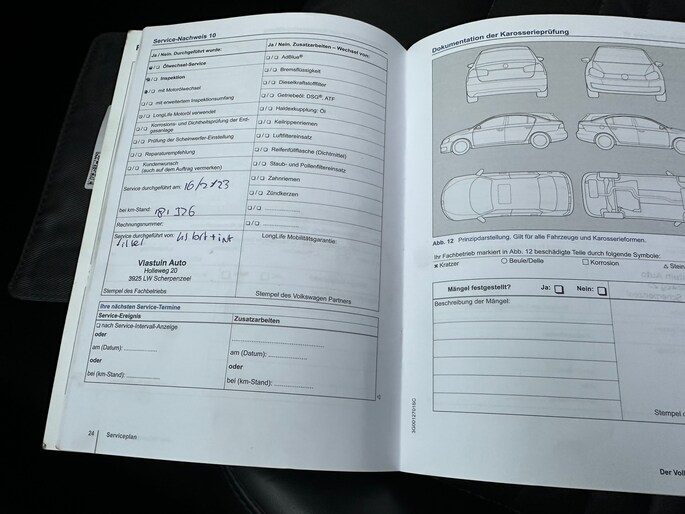 Service-Nachweis 10
Ja / Nein. Durchgeführt wurde:
Ölwechsel-Service
Inspektion
mit Motorölwechsel
mit erweitertem Inspektionsumfang
LongLife Motoröl verwendet
Korrosions- und Dichtheitsprüfung der Erdgasanlage
Prüfung der Scheinwerfer-Einstellung
Reparaturempfehlung
Kundenwunsch
(auch auf dem Auftrag vermerken)
Service durchgeführt am: 16/2/23
bei km-Stand:
Rechnungsnummer:
Service durchgeführt von:
Vlastuin Auto
Holleweg 20
3925 LW Scherpenzeel
Stempel des Fachbetriebs
Ja / Nein. Zusatzarbeiten – Wechsel von:
AdBlue®
Bremsflüssigkeit
Dieselkraftstofffilter
Getriebeöl: DSG®, ATF
Haldexkupplung: Öl
Keilrippenriemen
Luftfiltereinsatz
Reifenfüllflasche (Dichtmittel)
Staub- und Pollenfiltereinsatz
Zahnriemen
Zündkerzen
LongLife Mobilitätsgarantie:
Stempel des Volkswagen Partners
Ihre nächsten Service-Termine
Service-Ereignis
nach Service-Intervall-Anzeige
oder
am (Datum):
oder
bei (km-Stand):
Zusatzarbeiten
am (Datum):
oder
bei (km-Stand):
24 Serviceplan
Dokumentation der Karosserieprüfung
Abb. 12 Prinzipdarstellung. Gilt für alle Fahrzeuge und Karosserieformen.
Ihr Fachbetrieb markiert in Abb. 12 beschädigte Teile durch folgende Symbole:
Kratzer Beule/Delle Korrosion
Mängel festgestellt? Ja: Nein:
Beschreibung der Mängel:
Stempel
3G0012701SC
Der